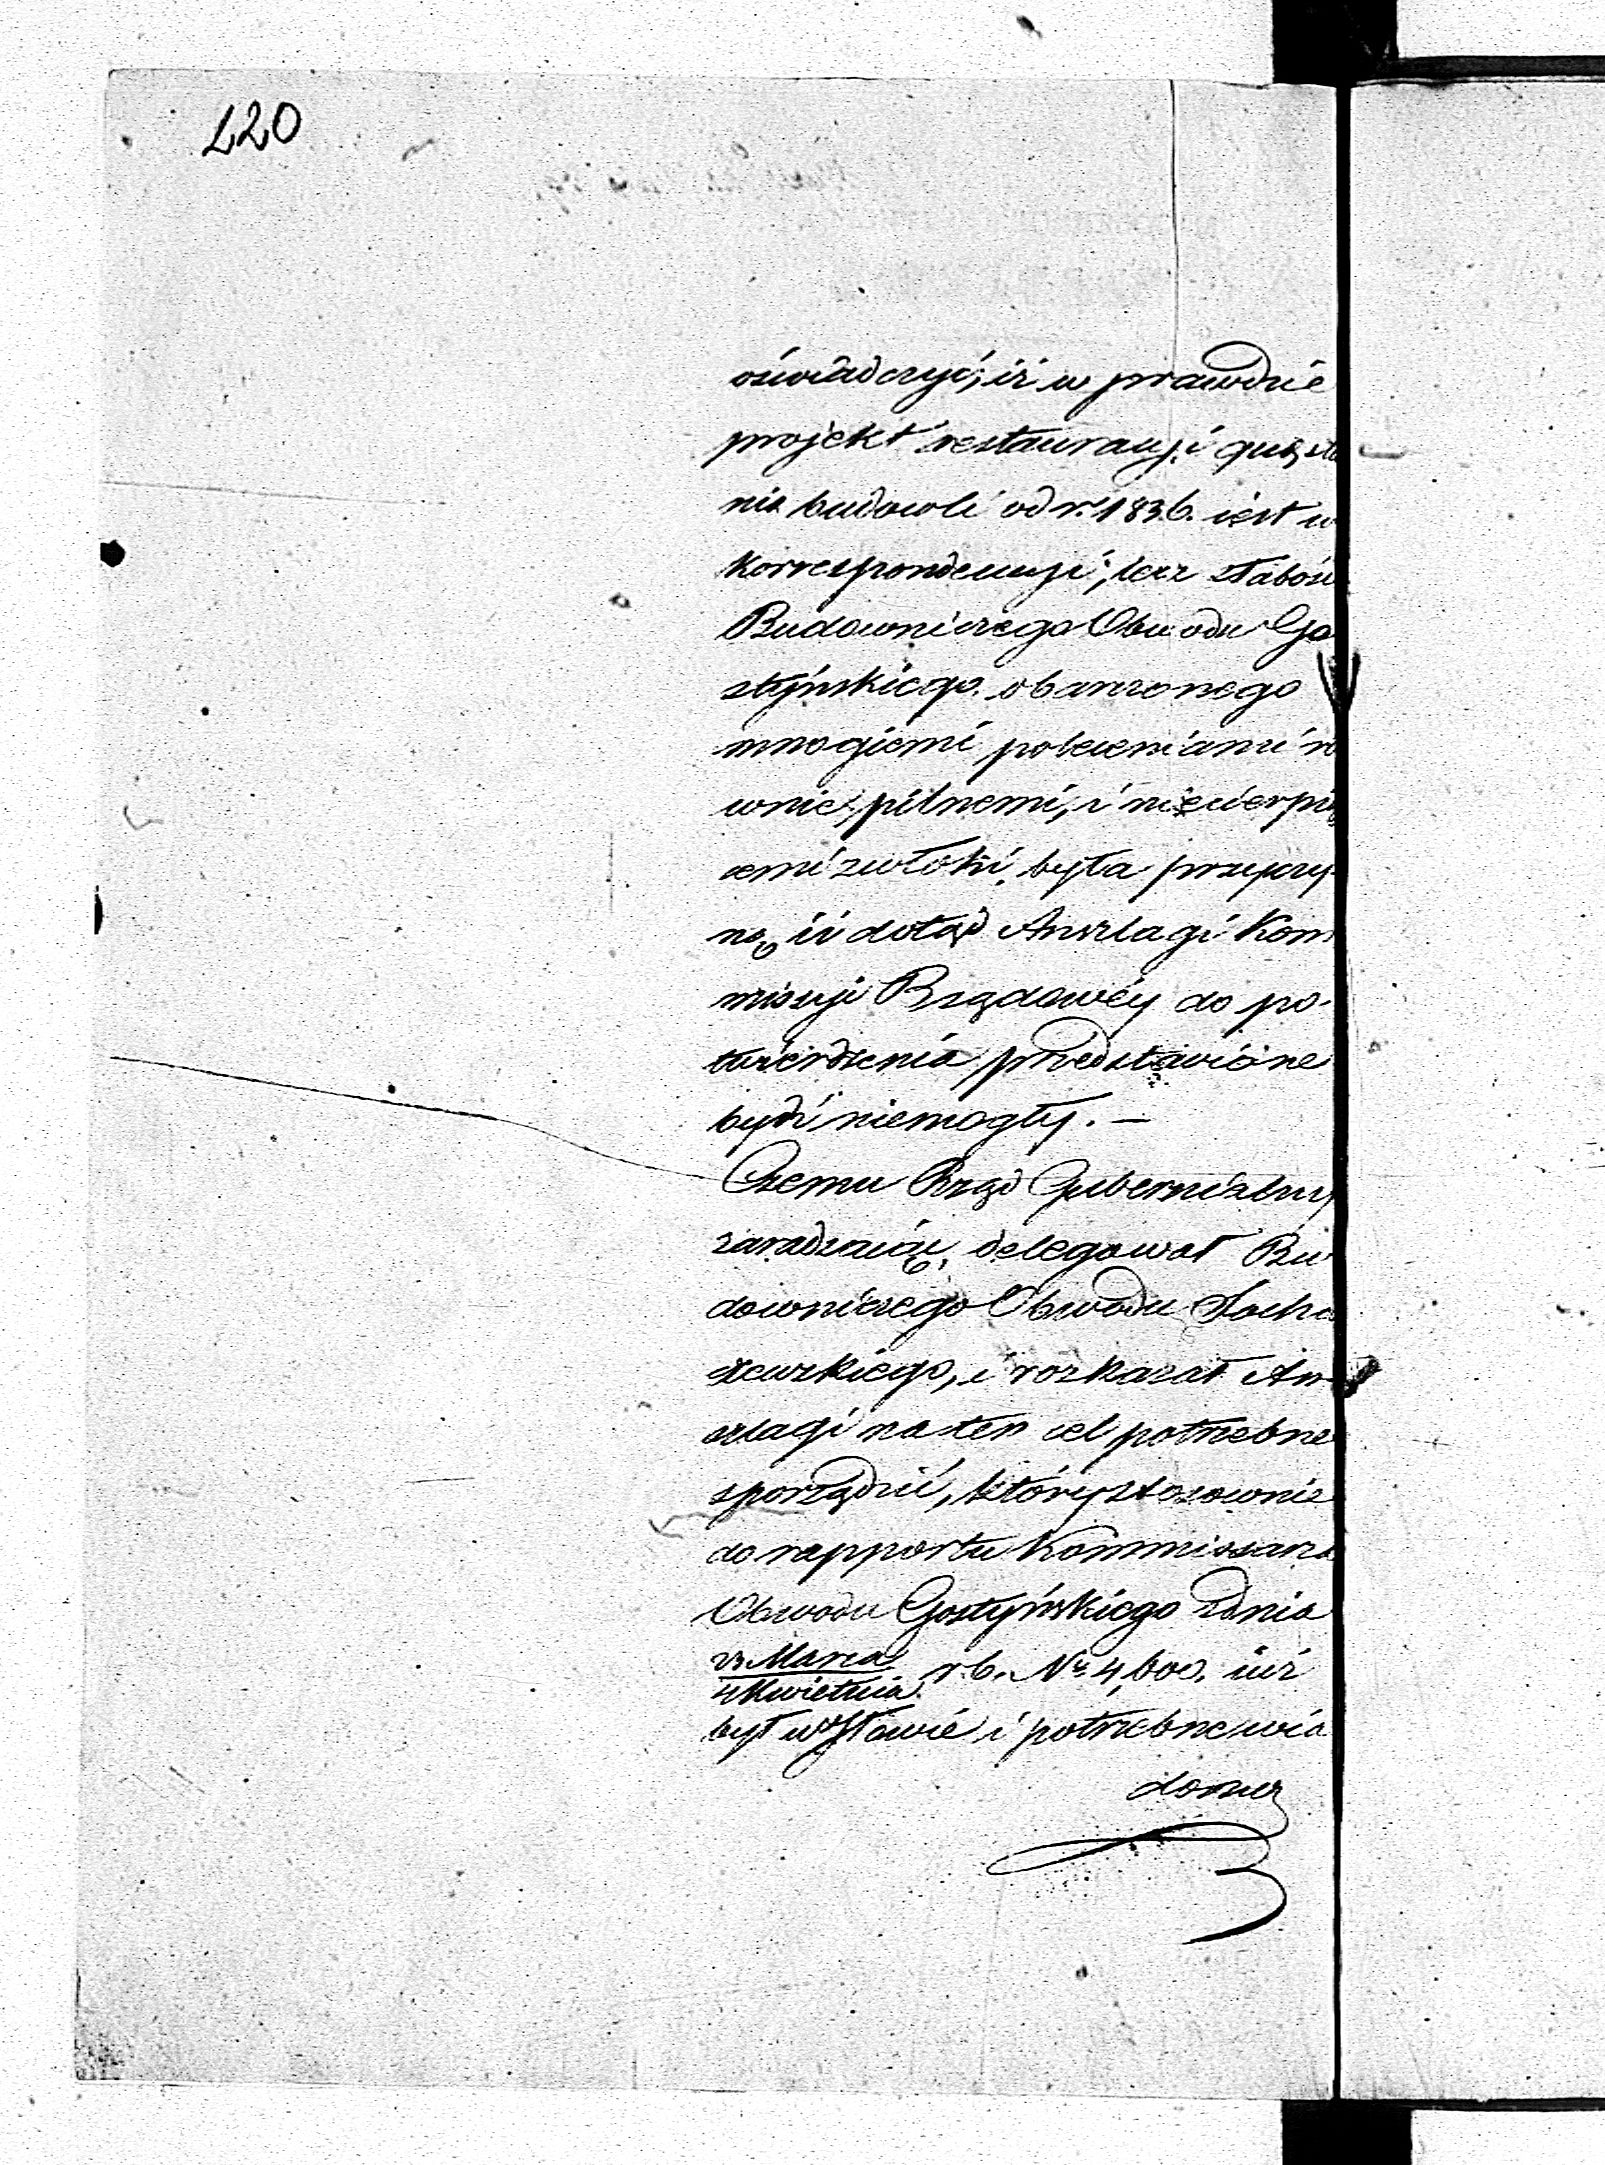 220
oświadczyć, iż w prawdzie
projekt restauracyi
nia budowli od r. 1836. iest w
Korrespondencyi, lecz słabość
Budowniczego Obwodu Go
styńskiego, obarczonego
mnogiemi poleceniami ró
wnie pilnemi, i niecierpią
cemi zwłoki, była przyczy
ną, iż dotąd Anszlagi Kom
missyi Rządowéy do po-
twierdzenia przedstawione
bydź niemogły. —
Czemu Rząd Gubernialny
zaradzaiąc, delegował Bu
downiczego Obwodu Socha
czewskiego, i rozkazał An
szlagi na ten cel potrzebne
sporządzić, który stosownie
do rapportu Kommissarza
Obwodu Gostyńskiego z dnia
23 Marca
4 Kwietnia r. b. Nr 4,600. iuż
był w Iłowie i potrzebne wia
domo